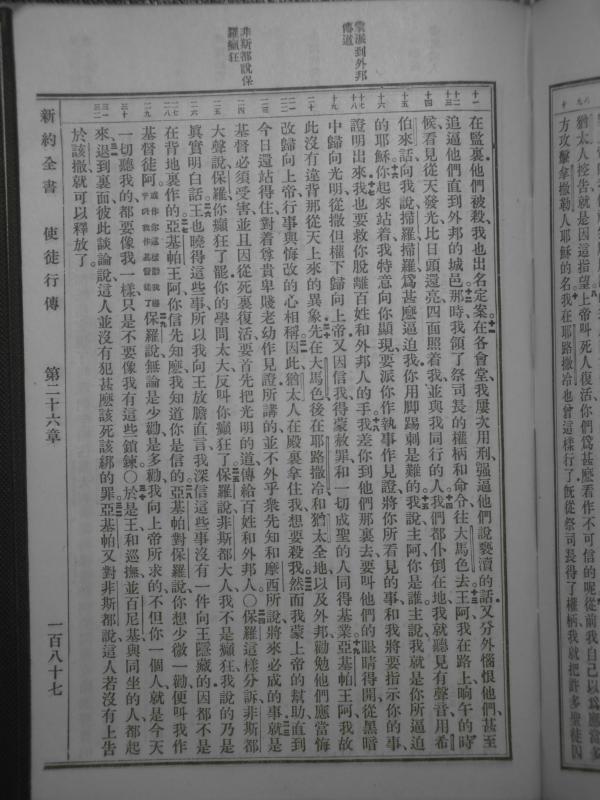 猶太人控告就是因這指望上帝叫死人復活你們爲甚麽看作不可信的呢從前我自己以爲應當多
方攻擊拿撒勒人耶穌的名我在耶路撒冷也曾這樣行了旣從祭司長得了權柄我就把許多聖徒囚
蒙派到外邦
傳道
非斯都說保
羅癲狂
在監裏他們被殺我也出名定案在各會堂我屢次用刑强逼他們說褻瀆的話又分外惱恨他們甚至
追逼他們直到外邦的城邑那時我領了祭司長的權柄和命令往大馬色去王阿我在路上晌午的時
候看見從天發光比日頭還亮四面照着我並與我同行的人我們都仆倒在地我就聽見有聲音用希
伯來話向我說掃羅掃羅爲甚麽逼迫我你用脚踢刺是難的我說主阿你是誰主說我就是你所逼迫
的耶穌你起來站着我特意向你顯現要派你作執事作見證將你所看見的事和我將要指示你的事
證明出來我也要救你脫離百姓和外邦人的手我差你到他們那裏去要叫他們的眼睛得開從黑暗
中歸向光明從撒但權下歸向上帝又因信我得蒙赦罪和一切成聖的人同得基業亞基帕王阿我故
此沒有違背那從天上來的異象先在大馬色後在耶路撒冷和猶太全地以及外邦勸勉他們應當悔
改歸向上帝行事與悔改的心相稱因此猶太人在殿裏拿住我想要殺我然而我蒙上帝的幫助直到
今日還站得住對着尊貴卑賤老幼作見證所講的並不外乎衆先知和摩西所說將來必成的事就是
基督必須受害並且因從死裏復活要首先把光明的道傳給百姓和外邦人〇保羅這樣分訴非斯都
大聲說保羅你癲狂了罷你的學問太大反叫你癲狂了保羅說非斯都大人我不是癲狂我說的乃是
眞實明白話王也曉得這些事所以我向王放膽直言我深信這些事沒有一件向王隱藏的因都不是
在背地裏作的亞基帕王阿你信先知麽我知道你是信的亞基帕對保羅說你想少微一勸便叫我作
基督徒阿或作你這樣勸我幾乎叫我作基督徒了保羅說無論是少勸是多勸我向上帝所求的不但你一個人就是今天
一切聽我的都要像我一樣只是不要像我有這些鎖鍊〇於是王和巡撫並百尼基與同坐的人都起
來退到裏面彼此談論說這人並沒有犯甚麽該死該綁的罪亞基帕又對非斯都說這人若沒有上告
於該撒就可以釋放了
新約全書　使徒行傳　第二十六章　一百八十七